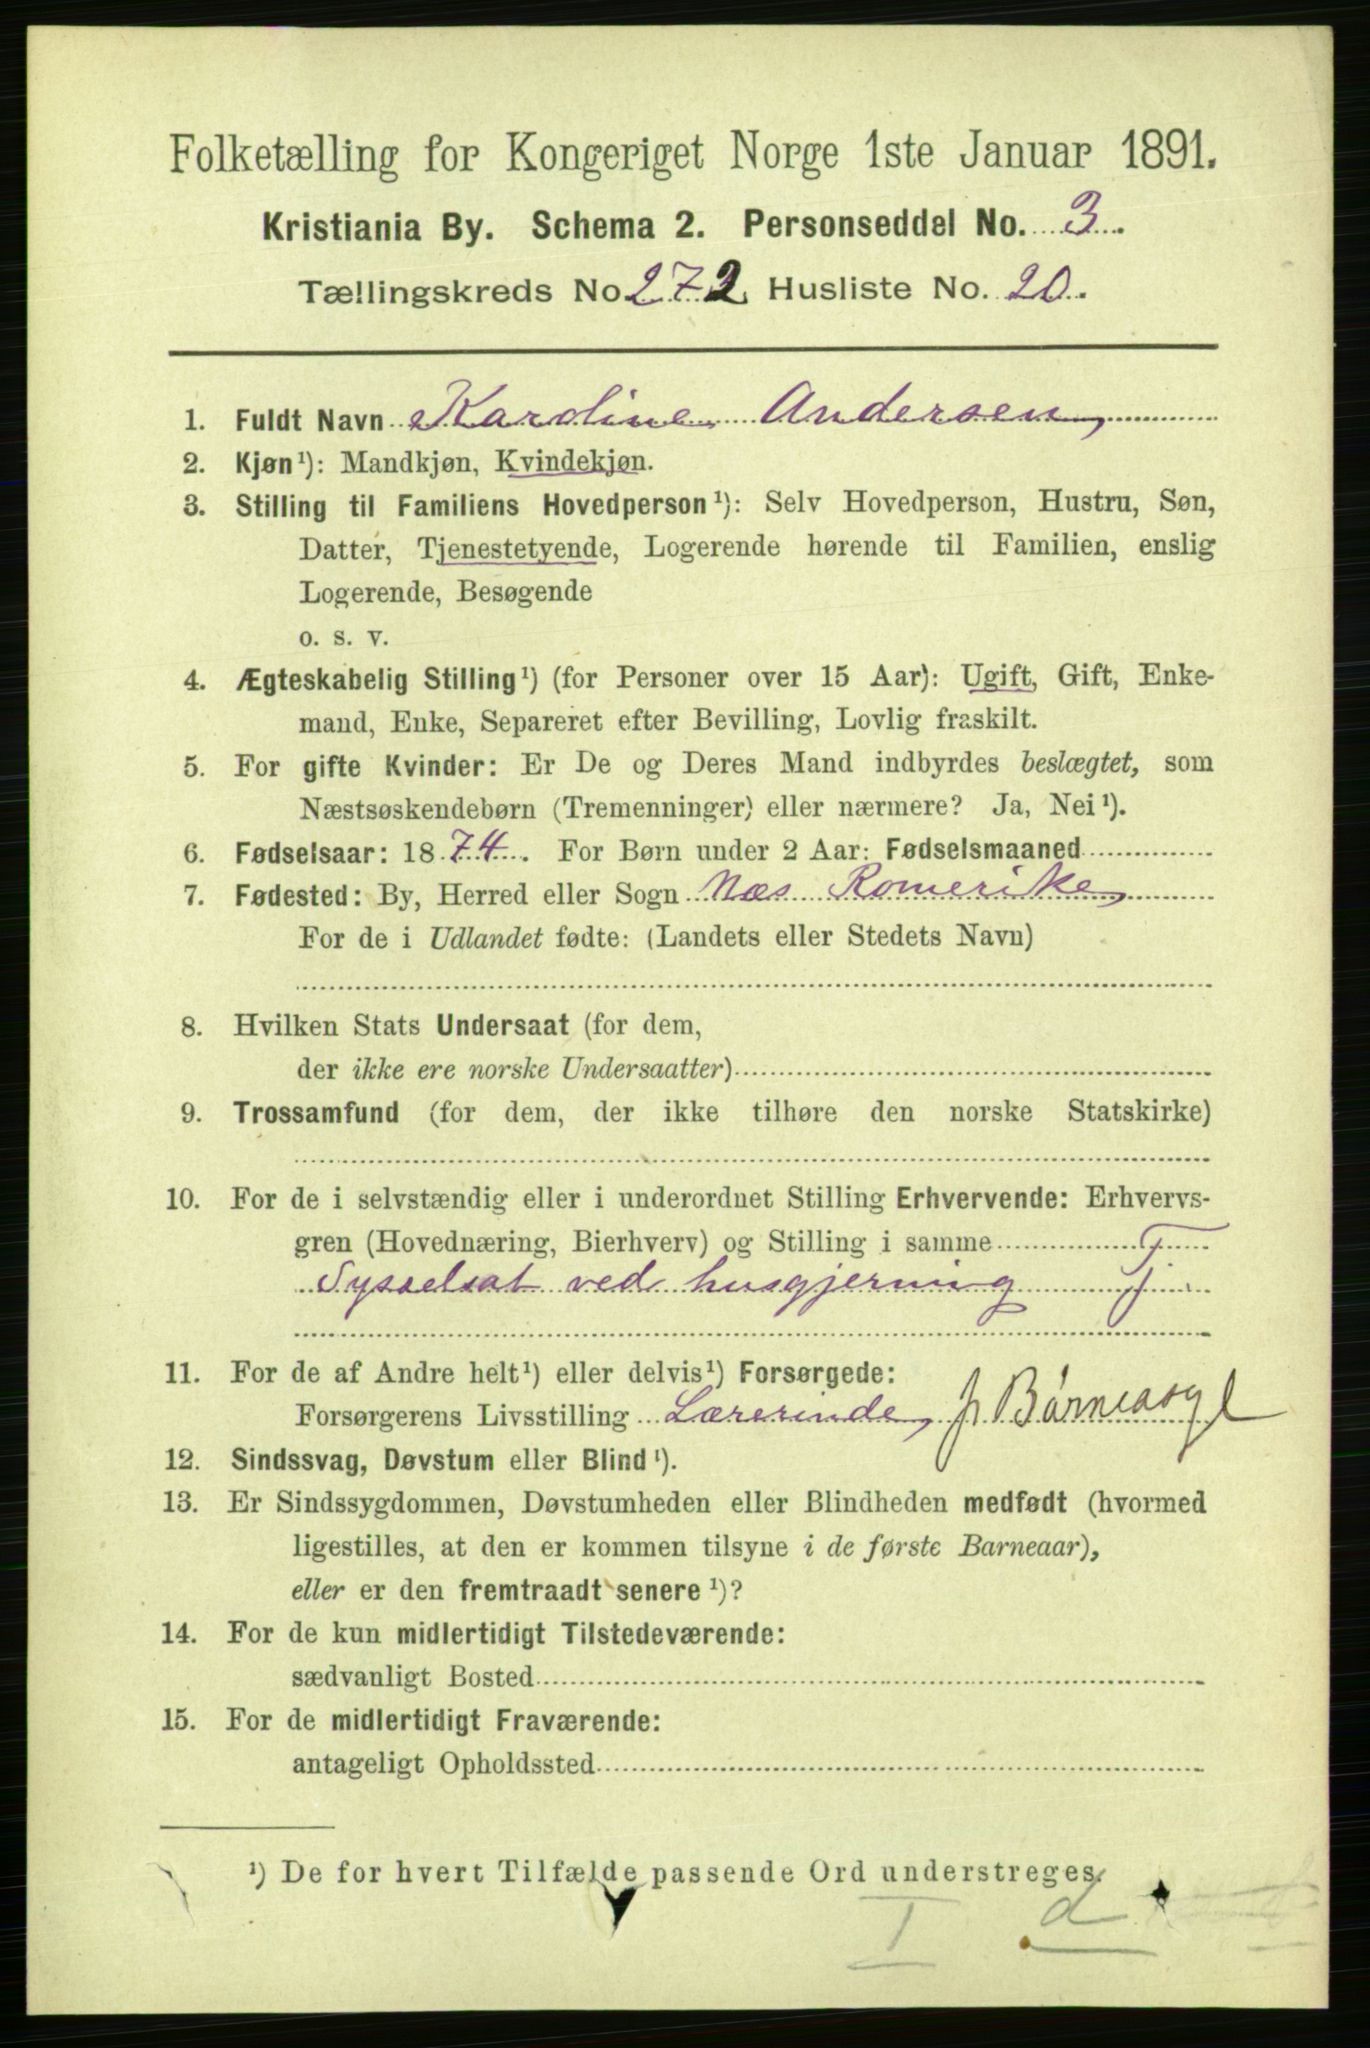 Folketælling for Kongeriget Norge 1ste Januar 1891.
Kristiania By. Schema 2. Personseddel No. 3.
Tællingskreds No 272 Husliste No. 20.
1. Fuldt Navn Karoline Andersen,
2. Kjøn¹): Mandkjøn, Kvindekjøn.
3. Stilling til Familiens Hovedperson¹): Selv Hovedperson, Hustru, Søn,
Datter, Tjenestetyende, Logerende hørende til Familien, enslig
Logerende, Besøgende
o. s. v.
4. Ægteskabelig Stilling¹) (for Personer over 15 Aar): Ugift, Gift, Enke-
mand, Enke, Separeret efter Bevilling, Lovlig fraskilt.
5. For gifte Kvinder: Er De og Deres Mand indbyrdes beslægtet, som
Næstsøskendebørn (Tremenninger) eller nærmere? Ja, Nei¹).
6. Fødselsaar: 1874. For Børn under 2 Aar: Fødselsmaaned
7. Fødested: By, Herred eller Sogn Næs Romerike,
For de i Udlandet fødte: (Landets eller Stedets Navn)
8. Hvilken Stats Undersaat (for dem,
der ikke ere norske Undersaatter)
9. Trossamfund (for dem, der ikke tilhøre den norske Statskirke)
10. For de i selvstændig eller i underordnet Stilling Erhvervende: Erhvervs-
gren (Hovednæring, Bierhverv) og Stilling i samme T
Sysselsat ved husgjerning j
11. For de af Andre helt¹) eller delvis¹) Forsørgede:
Forsørgerens Livsstilling Lærerinde, p Børneasyl
12. Sindssvag, Døvstum eller Blind¹).
13. Er Sindssygdommen, Døvstumheden eller Blindheden medfødt (hvormed
ligestilles, at den er kommen tilsyne i de første Barneaar),
eller er den fremtraadt senere¹)?
14. For de kun midlertidigt Tilstedeværende:
sædvanligt Bosted
15. For de midlertidigt Fraværende:
antageligt Opholdssted
¹) De for hvert Tilfælde passende Ord understreges.
I d